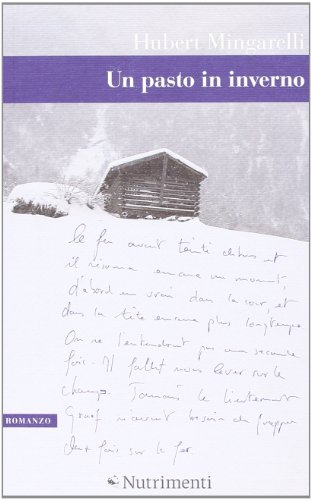 Hubert Mingarelli
Un pasto in inverno
le fer avait tinté dehors et
il résonna encore un moment,
d'abord en vrai dans la cour, et
dans la tête encore plus longtemps.
On ne l'entendrait pas une seconde
fois. Il fallut nous lever sur le
champ. Jamais le lieutenant
Graaf n'avait besoin de frapper
deux fois sur le fer
ROMANZO
Nutrimenti